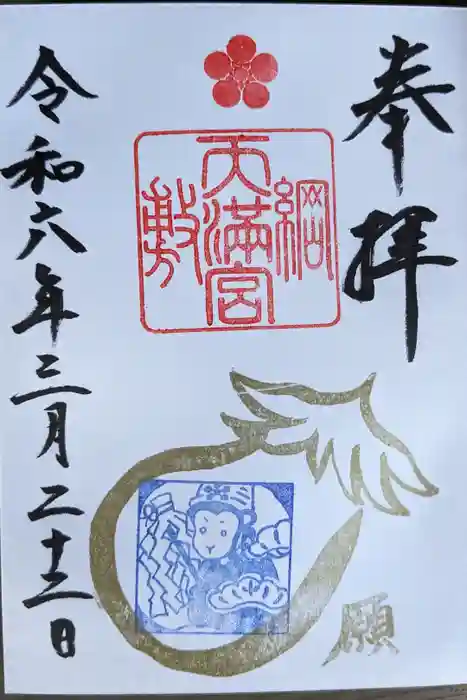 奉拝
綱敷
天満宮
願
令和六年三月二十三日